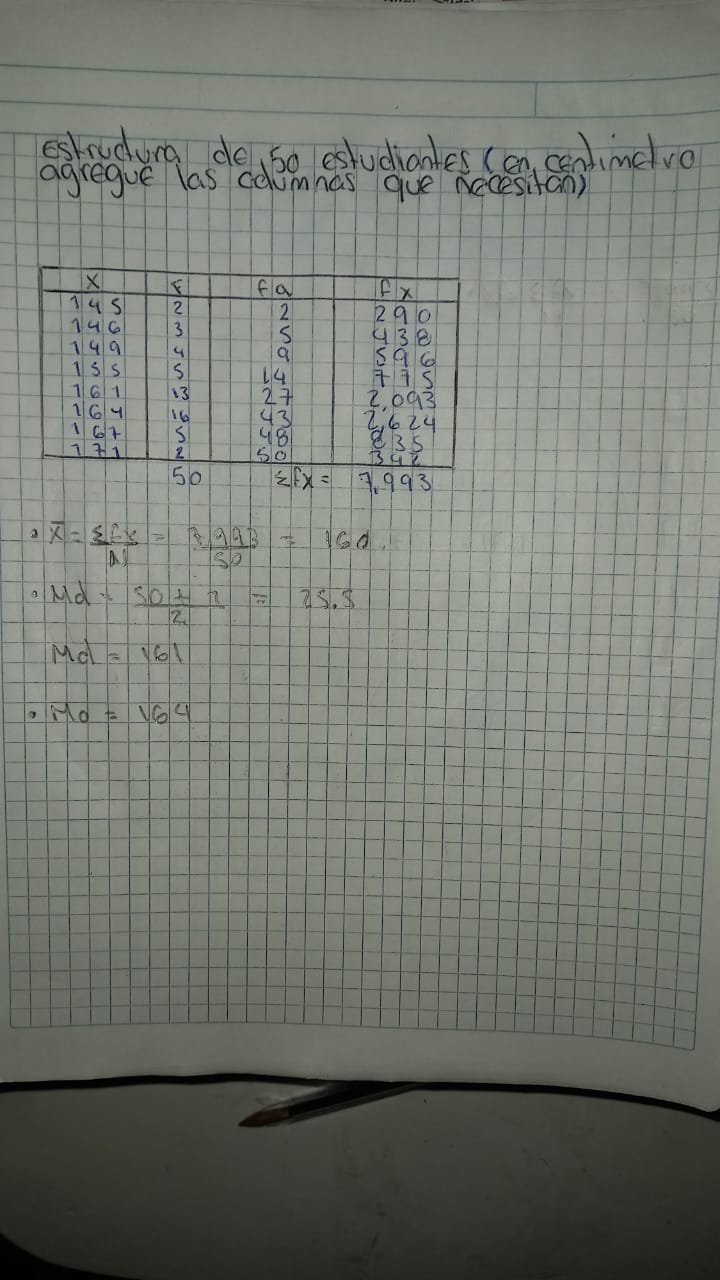 estructura de 50 estudiantes (en centimetro
agregue las columnas que necesitan)
X f fa fx
145 2 2 290
146 3 5 438
149 4 9 596
155 5 14 775
161 13 27 2,093
164 16 43 2,624
167 5 48 835
171 2 50 342
50 Σfx = 7,993
• X̄ = Σfx/N = 7,993/50 = 160
• Md = 50 + 1/2 = 25.5
Md = 161
• Mo = 164